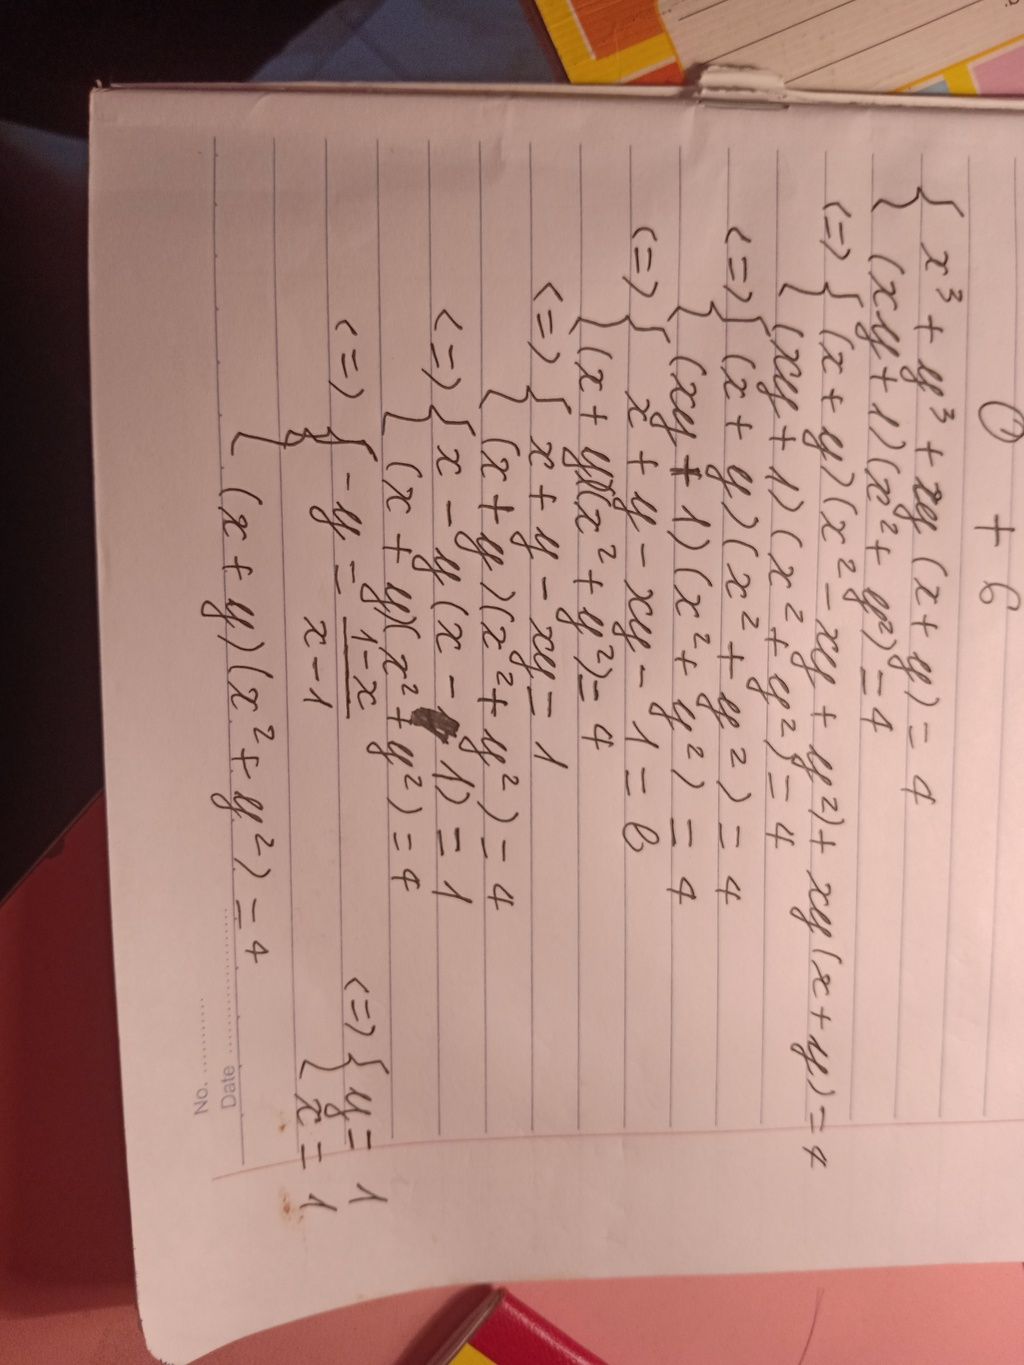 ① + 6
{ x³ + y³ + xy(x + y) = 4
{ (xy + 1)(x² + y²) = 4
<=> { (x + y)(x² - xy + y²) + xy(x + y) = 4
{ (xy + 1)(x² + y²) = 4
<=> { (x + y)(x² + y²) = 4
{ (xy + 1)(x² + y²) = 4
<=> { x + y - xy - 1 = 0
{ (x + y)(x² + y²) = 4
<=> { x + y - xy = 1
{ (x + y)(x² + y²) = 4
<=> { x - y(x - 1) = 1
{ (x + y)(x² + y²) = 4
<=> { -y = \frac{1-x}{x-1} <=> { y = 1
{ (x + y)(x² + y²) = 4 { x = 1
No. ..........
Date ....................